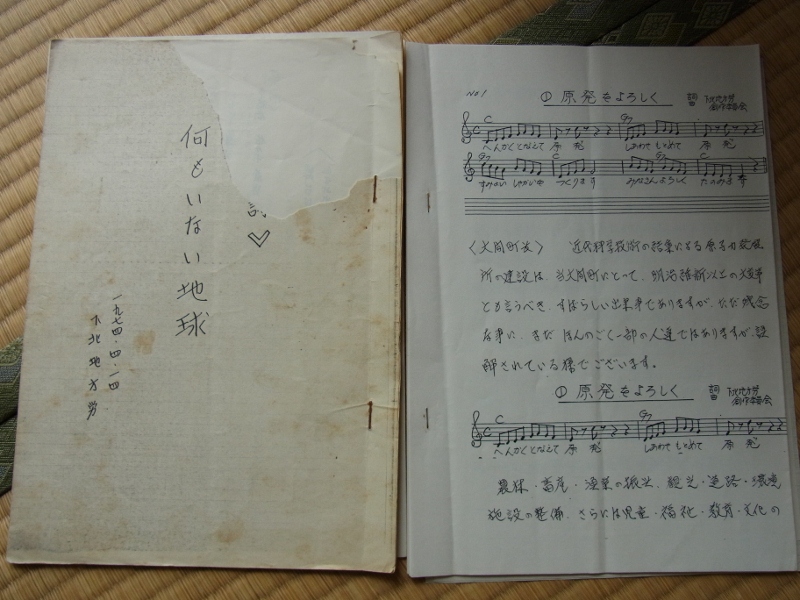 何もいない地球
詩
一九七四・四・一四
下北地方労
No.1
① 原発をよろしく
詞曲 下北地方労
創作委員会
C
G7
へんかくとなえて 原発
しあわせもとめて 原発
G7
C
G7
C
すみのい しゃかい
つくります
みなさんよろしく
たのみます
〈大間町長〉 近代科学技術の結集による原子力発電
所の建設は、当大間町にとって、明治維新以上の大変革
とも言うべき、すばらしい出来事でありますが、ただ残念
な事に、まだ ほんのごく一部の人達ではありますが、誤
解されている様でございます。
① 原発をよろしく
詞曲 下北地方労
創作委員会
C
G7
へんかくとなえて 原発
しあわせもとめて 原発
農林・畜産・漁業の振興、観光・道路・環境
施設の整備、さらには児童・福祉・教育・文化の